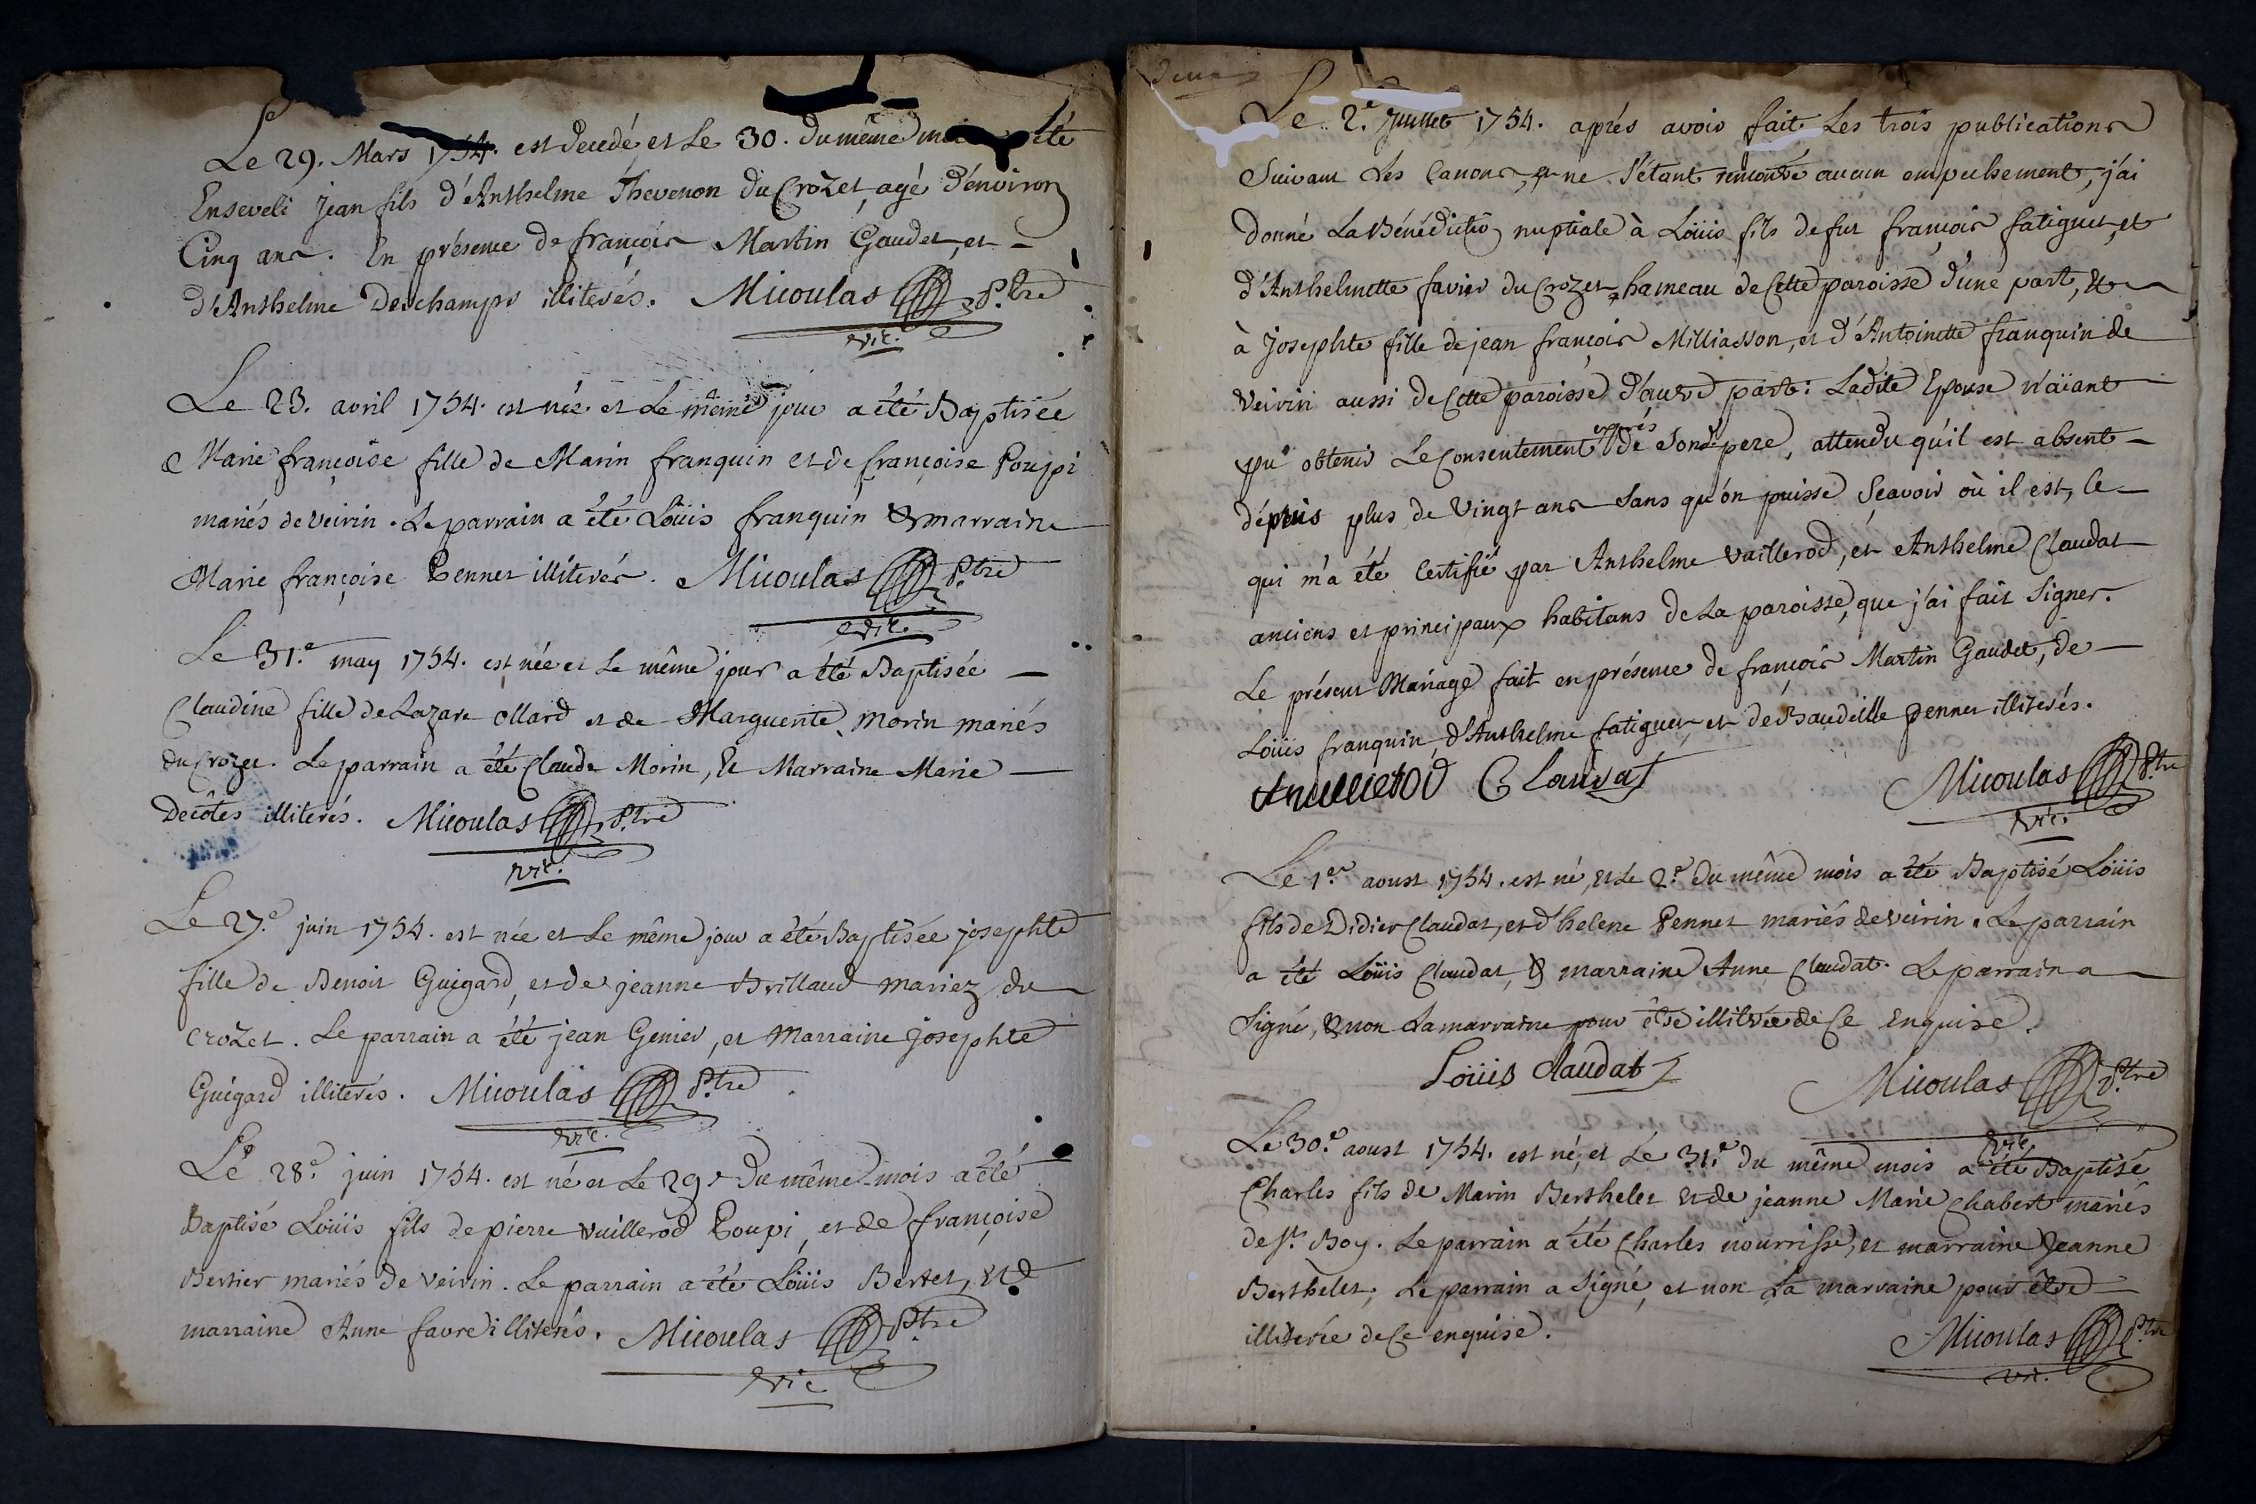 Le 29. Mars 1754. est decedé et Le 30. du même mois été
Enseveli jean fils d'Anthelme Thevenon du Crozet, agé d'environ
Cinq ans. En présence de françois Martin Gaudet, et
d'Anthelme Deschamps illiterés. Micoulas P.tre
vic.
Le 23. avril 1754. est née et Le même jour a été Baptisée
Marie françoise fille de Marin franquin et de françoise Poupi
mariés de veirin. Le parrain a été Loüis franquin & marraine
Marie françoise Pennet illiterés. Micoulas P.tre
vic.
Le 31.e may 1754. est née et Le même jour a été Baptisée
Claudine fille de Lazare Ollard et de Marguerite Morin mariés
du Crozet. Le parrain a été Claude Morin, & Marraine Marie
Decôtes illiterés. Micoulas P.tre
vic.
Le 27.e juin 1754. est née et Le même jour a été Baptisée josephte
fille de Benoit Guigard, et de jeanne Brillaud mariez du
Crozet. Le parrain a été jean Genier, et Marraine josephte
Guigard illiterés. Micoulas P.tre
vic.
Le 28.e juin 1754. est né et Le 29e du même mois a été
Baptisé Loüis fils de pierre vuillerod Poupi, et de françoise
Bertier mariés de veirin. Le parrain a été Loüis Bertet, et
marraine Anne favre illiterés. Micoulas P.tre
vic
Le 2.e Juillet 1754. aprés avoir fait Les trois publications
Suivant Les Canons, et ne s'étant rencontré aucun empechement, j'ai
donné La Bénédictio nuptiale à Loüis fils de fut françois fatiguet, et
d'Anthelmette favier du Crozet hameau de Cette paroisse d'une part, &
à Josephte fille de jean françois Milliasson, et d'Antoinette franquin de
Veirin aussi de Cette paroisse d'autre part: Ladite Epouse n'aïant
pu obtenir Le Consentement exprés de Sond. pere, attendu qu'il est absent
dépuis plus de Vingt ans Sans qu'on puisse Sçavoir où il est, le
qui m'a été Certifié par Anthelme vaillerod, et Anthelme Claudat
anciens et principaux habitans de La paroisse, que j'ai fait Signer.
Le présent Mariage fait en présence de françois Martin Gaudet, de
Loüis franquin, d'Anthelme fatiguet, et de Baudeille pennet illiterés.
Claudat Micoulas P.tre
vic.
Le 1.er aoust 1754. est né, et Le 2.e du même mois a été Baptisé Loüis
fils de Didier Claudat, et d'helene Pennet mariés de veirin. Le parrain
a été Loüis Claudat, & marraine Anne Claudat. Le parrain a
Signé, & non La marraine pour être illiterée de Ce Enquise.
Loüis Claudat Micoulas P.tre
vic.
Le 30.e aoust 1754. est né, et Le 31.e du même mois a été Baptisé
Charles fils de Marin Berthelet et de jeanne Marie Chabert mariés
de St. Boy. Le parrain a été Charles nourrisse, et marraine Jeanne
Berthelet, Le parrain a Signé, et non La marraine pour être
illiterée de Ce enquise. Micoulas P.tre
vic.